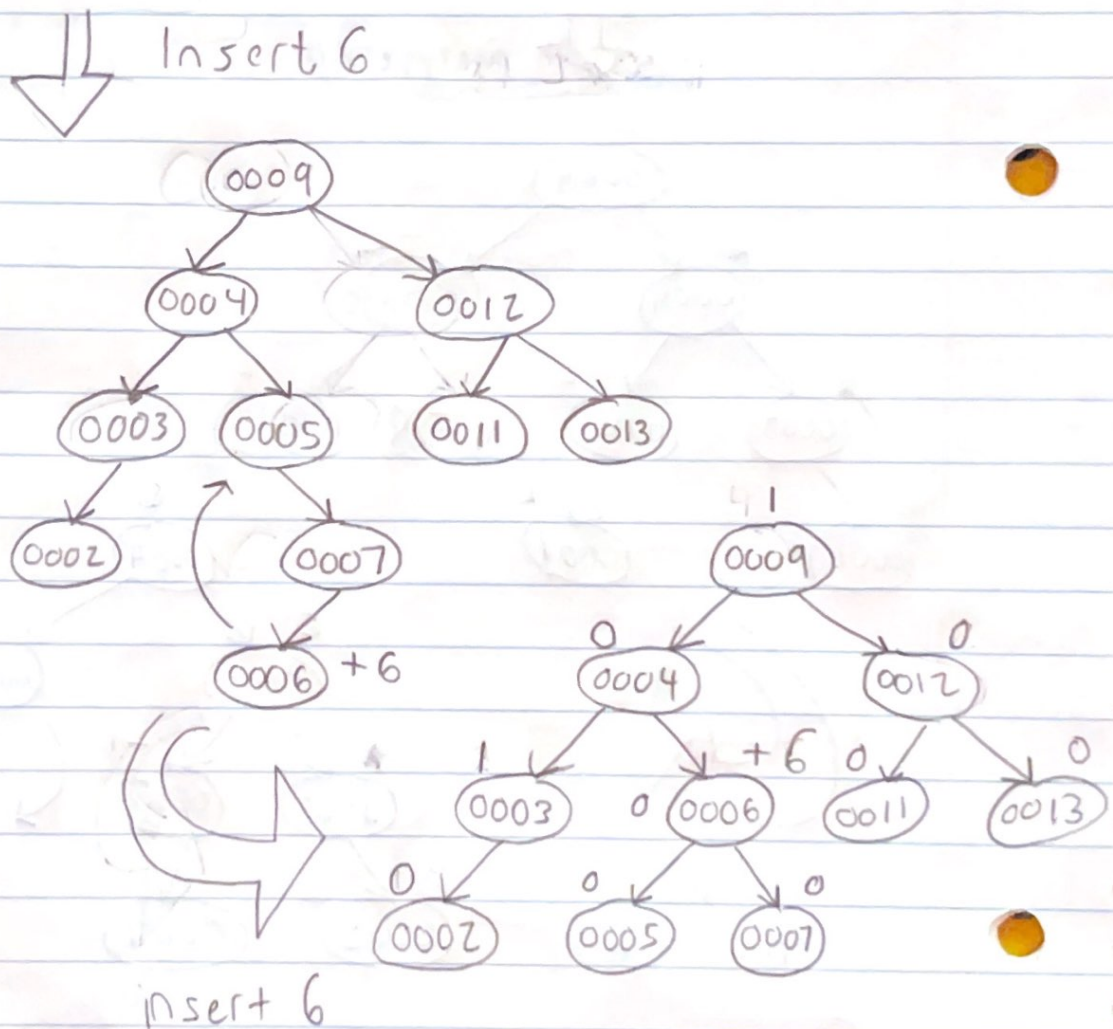 Insert 6
0009
0004 0012
0003 0005 0011 0013
0002 0007
0006 +6
1
0009
0 0
0004 0012
1 +6 0 0
0003 0 0006 0011 0013
0 0 0
0002 0005 0007
insert 6